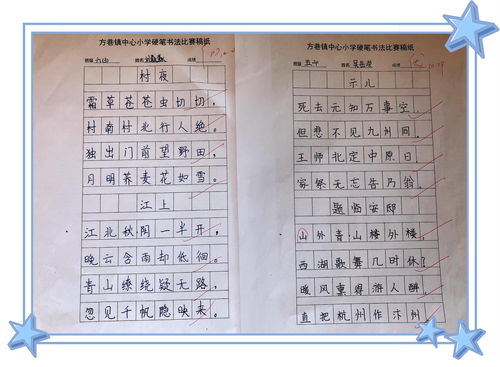 方巷镇中心小学硬笔书法比赛稿纸
班级 姓名 成绩
村夜
霜草苍苍虫切切,
村南村北行人绝。
独出门前望野田,
月明荞麦花如雪。
江上
江北秋阴一半开,
晚云含雨却低徊。
青山缭绕疑无路,
忽见千帆隐映来。
方巷镇中心小学硬笔书法比赛稿纸
班级 姓名 成绩
示儿
死去元知万事空,
但悲不见九州同。
王师北定中原日,
家祭无忘告乃翁。
题临安邸
山外青山楼外楼,
西湖歌舞几时休?
暖风熏得游人醉,
直把杭州作汴州。